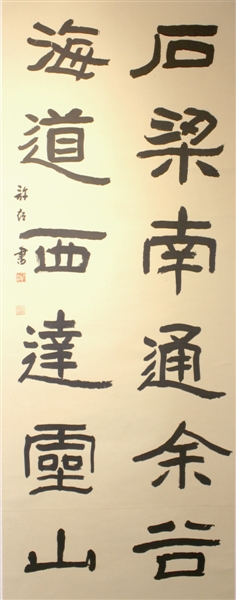 石梁南通余谷
海道西達靈山
書